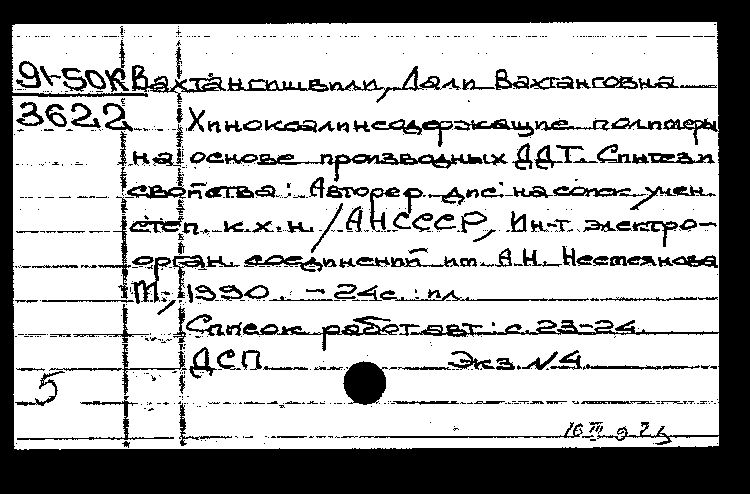 91-50К Вахтангишвили, Лали Вахтанговна
3622 Хиноксалинсодержащие полимеры
на основе производных ДДТ. Синтез и
свойства: Автореф. дис. на соиск. учен.
степ. к.х.н. / АН СССР, Ин-т электро-
орган. соединений им. А.Н. Несмеянова
М., 1990. - 24 с.: ил.
Список работ авт.: с. 23-24.
ДСП Экз. №4.
5